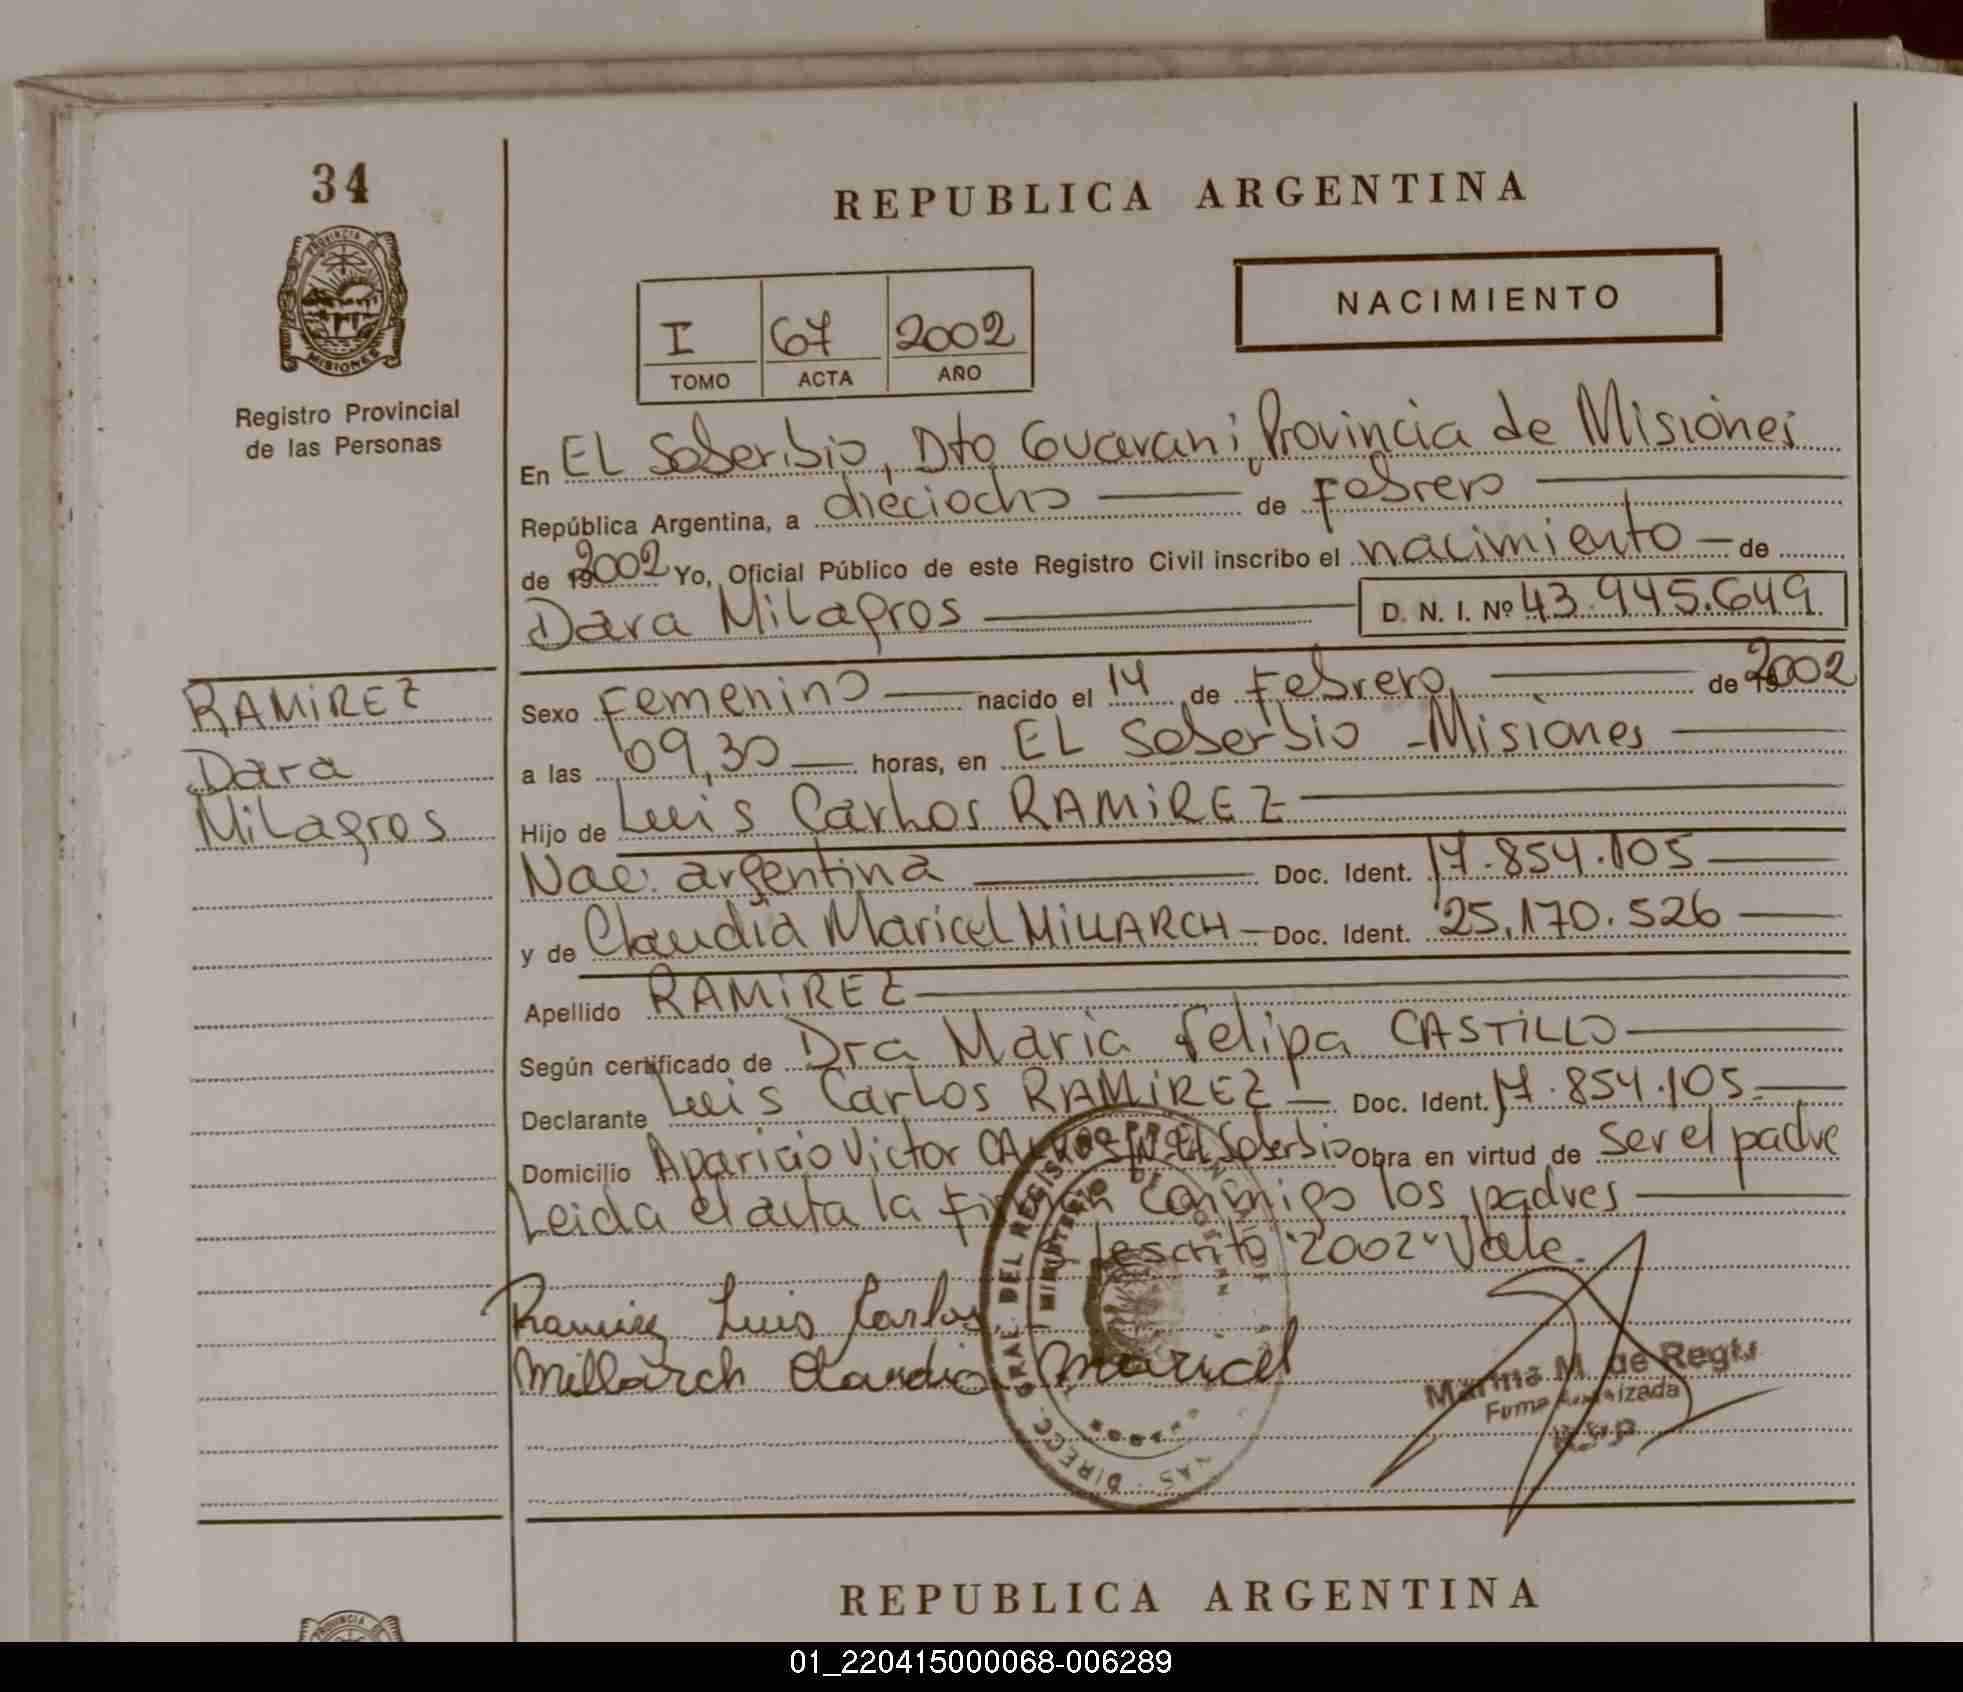 34
PROVINCIA DE
MISIONES
Registro Provincial
de las Personas
REPUBLICA ARGENTINA
NACIMIENTO
I 67 2002
TOMO ACTA AÑO
En EL Soberbio, Dto Guarani, Provincia de Misiones
República Argentina, a dieciocho de febrero
de 19 2002 Yo, Oficial Público de este Registro Civil inscribo el nacimiento de
Dara Milagros D. N. I. Nº 43.945.649
RAMIREZ
Dara
Milagros
Sexo Femenino nacido el 14 de Febrero de 19 2002
a las 09,30 horas, en EL Soberbio - Misiones
Hijo de Luis Carlos RAMIREZ
Nac. argentina Doc. Ident. 17.854.105
y de Claudia Maricel MILLARCH Doc. Ident. 25.170.526
Apellido RAMIREZ
Según certificado de Dra Maria Felipa CASTILLO
Declarante Luis Carlos RAMIREZ Doc. Ident. 17.854.105
Domicilio Aparicio Victor El Soberbio Obra en virtud de ser el padre
Leida el acta la firman conmigo los padres
"2002" Vale.
Ramirez Luis Carlos
Millarch Claudia Maricel
DIRECC. GRAL. DEL REGIS
MINISTERIO DE
Marina M. de Regis
Firma Autorizada
REPUBLICA ARGENTINA
PROVINCIA DE
01_220415000068-006289